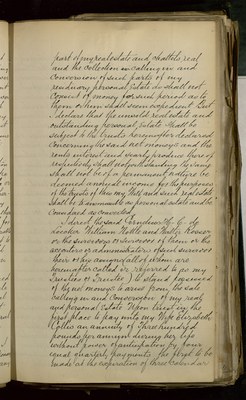 part of my real estate and chattels real
and the collection calling in and
conversion of such parts of my
residuary personal estate as shall not
consist of money for such period as to
them or him shall seem expedient But
I declare that the unsold real estate and
outstanding personal estate shall be
subject to the trusts hereinafter declared
concerning the said net moneys and the
rents interest and yearly produce thereof
respectively shall notwithstanding the same
shall not be of a permanent nature be
deemed annual income for the purposes
of the trusts of this my Will and such real estate
shall be transmissible as personal estate and be
considered as converted
I direct the said
William and
or the survivors or survivor of them or the
executors or administrators of such survivor
their or his assigns (all of whom are
hereinafter called or referred to as my
Trustees or Trustee) to stand possessed
of the net moneys to arise from the sale
calling in and conversion of my real
and personal estate Upon trust in the
first place to pay unto my Wife Elizabeth
an annuity of Three hundred
pounds per annum during her life
without power of anticipation by four
equal quarterly payments the first to be
made at the expiration of three calendar